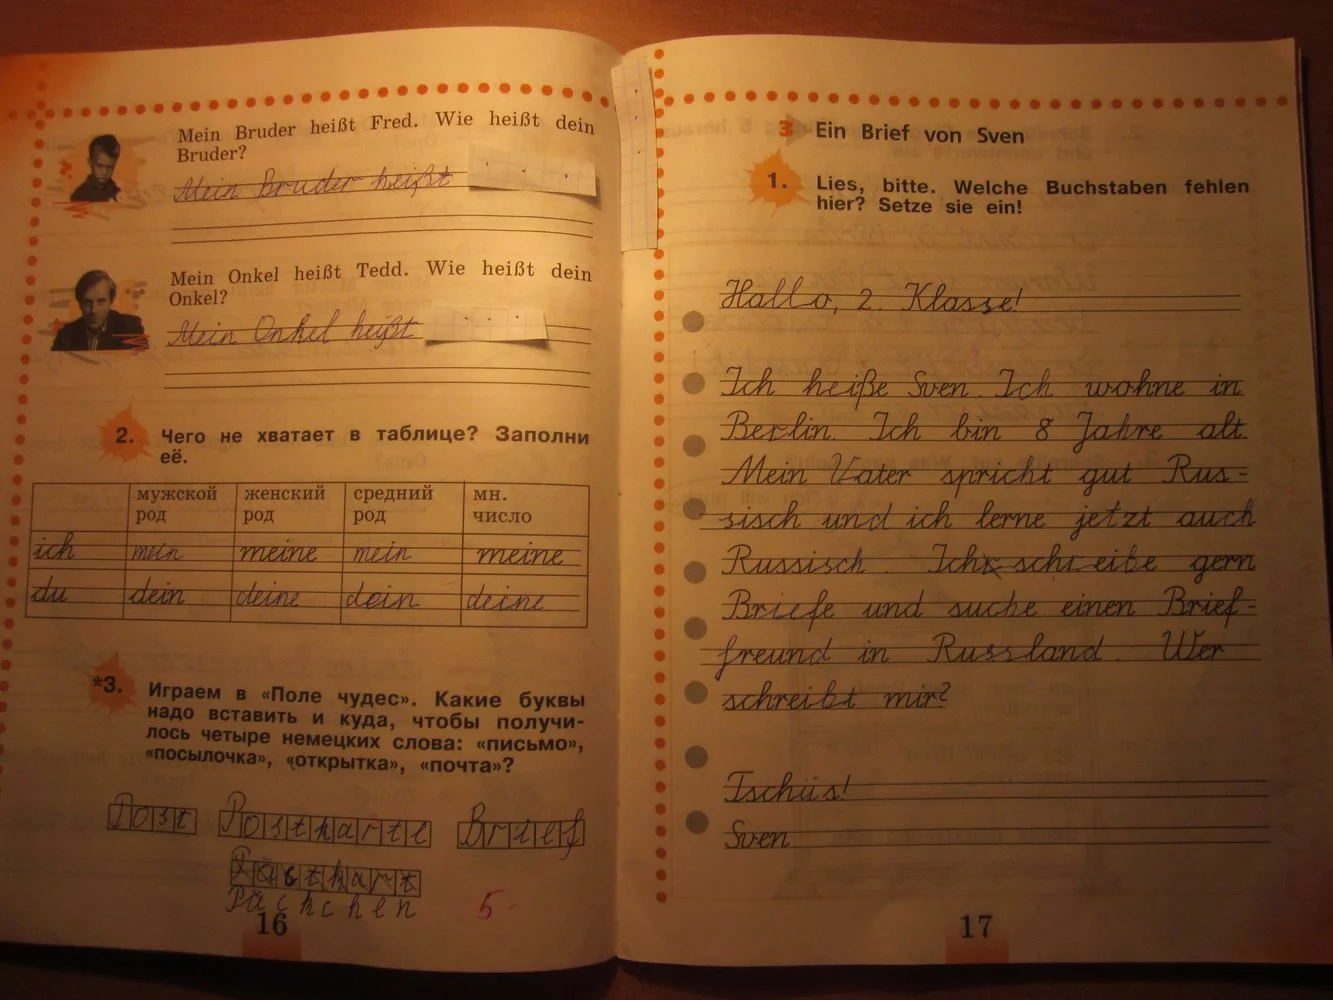 Mein Bruder heißt Fred. Wie heißt dein
Bruder?
Mein Bruder heißt
Mein Onkel heißt Tedd. Wie heißt dein
Onkel?
Mein Onkel heißt
2. Чего не хватает в таблице? Заполни
её.
мужской род женский род средний род мн. число
ich mein meine mein meine
du dein deine dein deine
*3. Играем в «Поле чудес». Какие буквы
надо вставить и куда, чтобы получи-
лось четыре немецких слова: «письмо»,
«посылочка», «открытка», «почта»?
Post Postkarte Brief
Päckchen
5-
16
3 Ein Brief von Sven
1. Lies, bitte. Welche Buchstaben fehlen
hier? Setze sie ein!
Hallo, 2. Klasse!
Ich heiße Sven. Ich wohne in
Berlin. Ich bin 8 Jahre alt.
Mein Vater spricht gut Rus-
sisch und ich lerne jetzt auch
Russisch. Ich schreibe gern
Briefe und suche einen Brief-
freund in Russland. Wer
schreibt mir?
Tschüs!
Sven
17